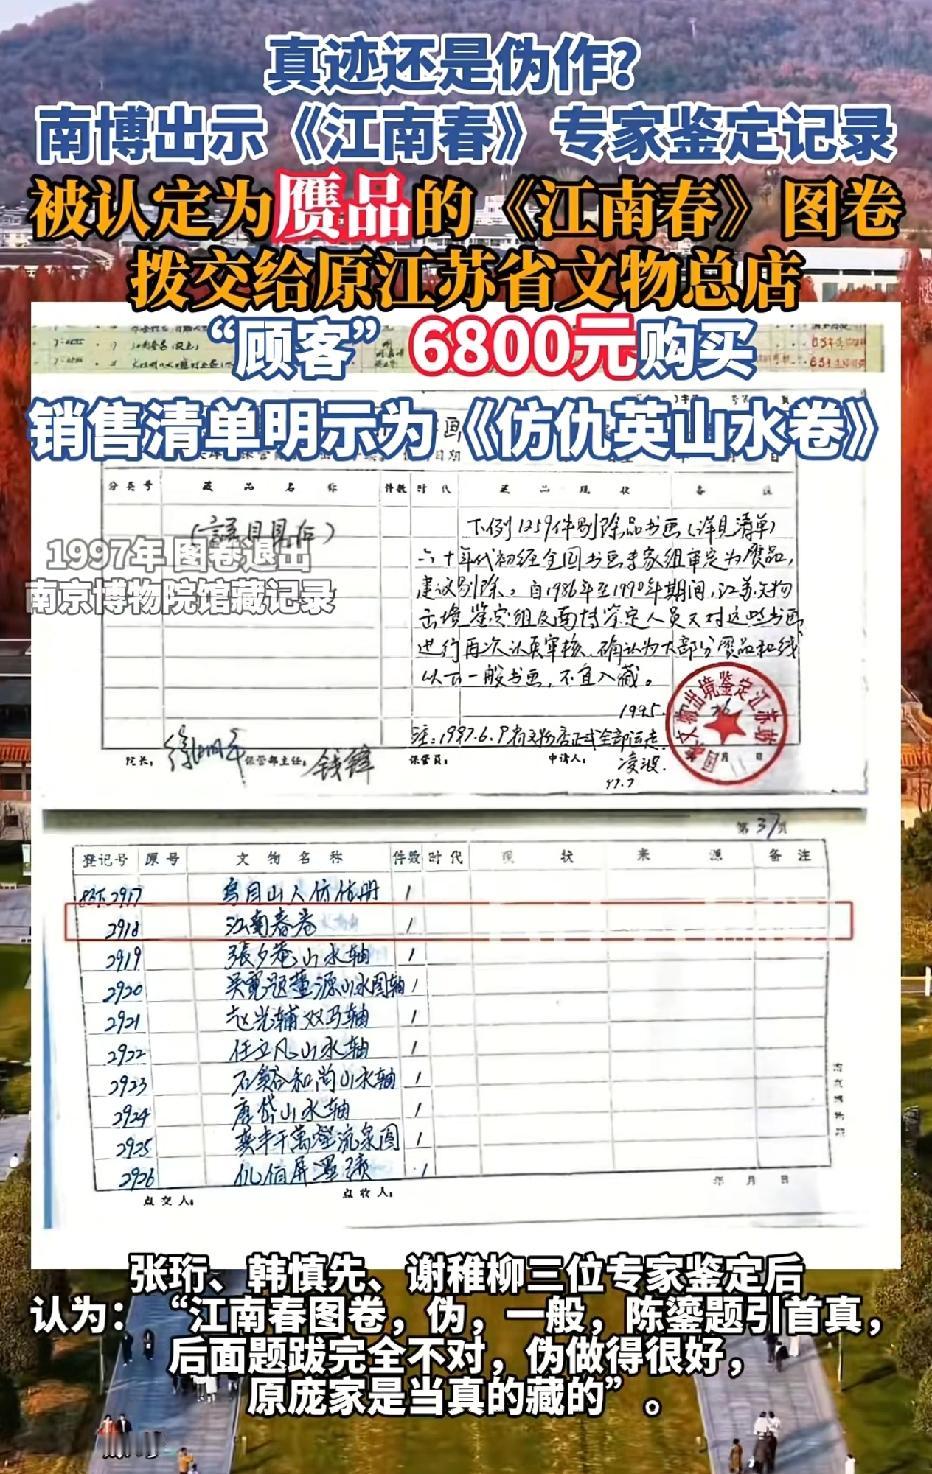 真迹还是伪作？
南博出示《江南春》专家鉴定记录
被认定为赝品的《江南春》图卷
拨交给原江苏省文物总店
“顾客”6800元购买
销售清单明示为《仿仇英山水卷》
分类号 藏品名称 件数 时代 藏品现状 备注
1997年图卷退出
南京博物院馆藏记录
下列1259件剔除品书画（详见清单）
六十年代初经全国书画专家组审定为赝品，
建议剔除，自1986年至1990年期间，江苏文物
出境鉴定组及南博鉴定人员又对这些书画
进行再次认真审核，确认为大部分赝品和线
以下一般书画，不宜入藏。
1995.
注：1997.6.9
院长： 徐湖平 保管部主任： 钱锋 保管员： 申请人： 凌波
97.7
第37页
登记号 原号 文物名称 件数 时代 现状 来源 备注
2917 1
2918 江南春卷 1
2919 張夕菴山水轴 1
2920 吴寬题董源山水图轴 1
2921 赵光辅双马轴 1
2922 任立凡山水轴 1
2923 石谿和尚山水轴 1
2924 唐岱山水轴 1
2925 流泉图 1
2926 1
点交人： 点收人： 年 月 日
张珩、韩慎先、谢稚柳三位专家鉴定后
认为：“江南春图卷，伪，一般，陈鎏题引首真，
后面题跋完全不对，伪做得很好，
原庞家是当真的藏的”。